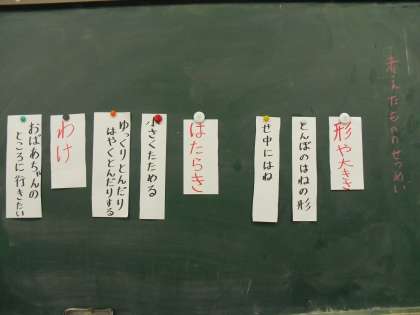 考えたもののせつめい
形や大きさ
とんぼのはねの形
せ中にはね
はたらき
小さくたためる
ゆっくりとんだり
はやくとんだりする
わけ
おばあちゃんの
ところに行きたい